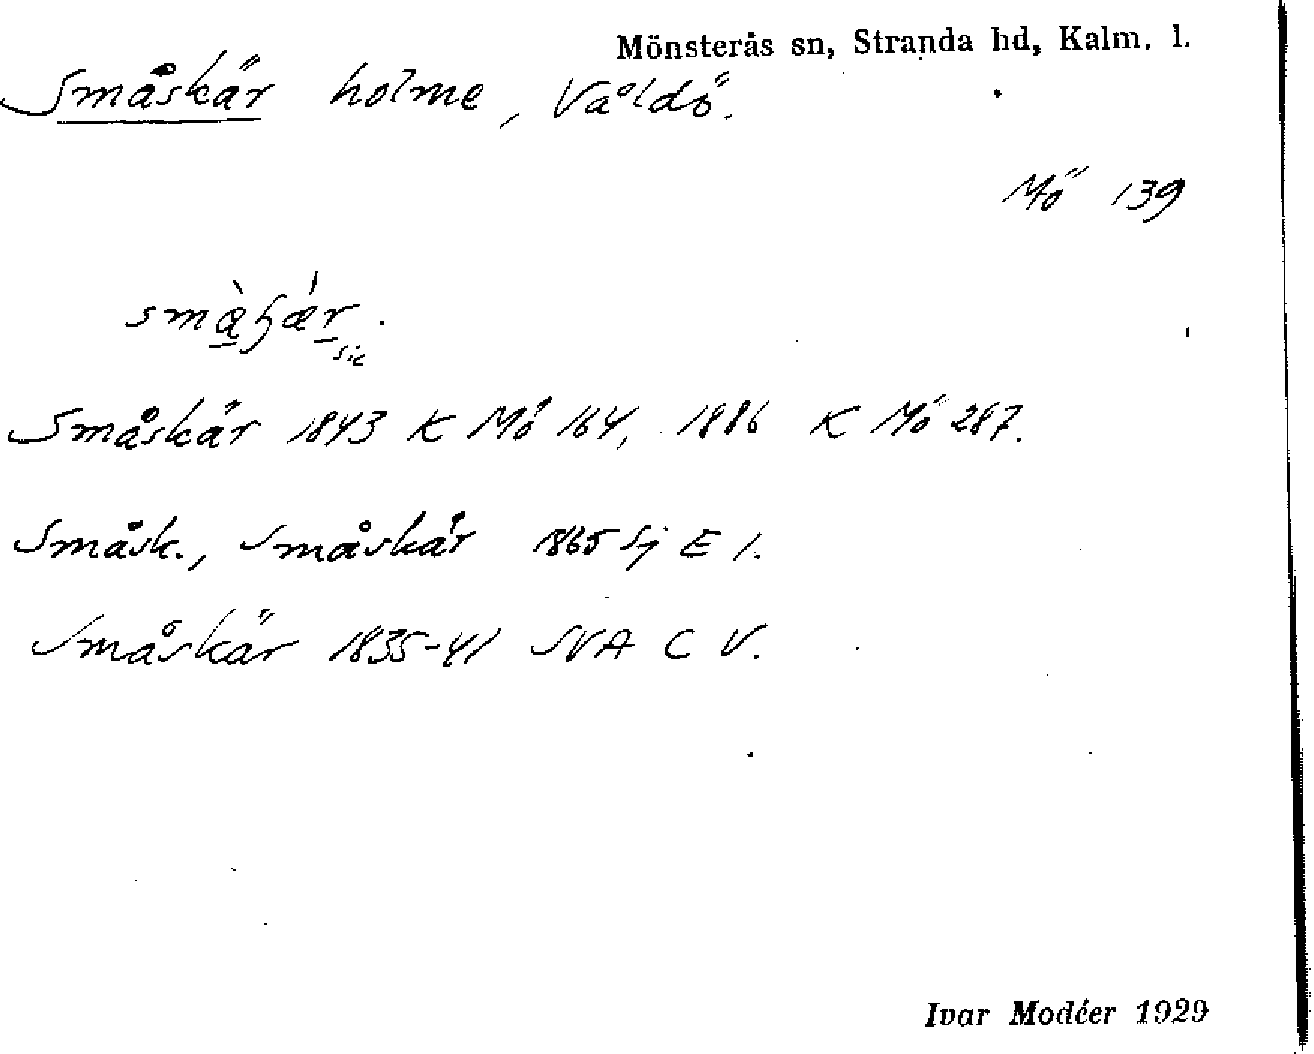 Mönsterås sn, Stranda hd, Kalm. l.
Småskär holme, Våldö.
Mö 139
sic
Småskär 1843 K Mö 164, 1886 K Mö 287.
Småsk., Småskär 1865 Sj E 1.
Småskär 1835-41 SVA C V.
Ivar Modéer 1929